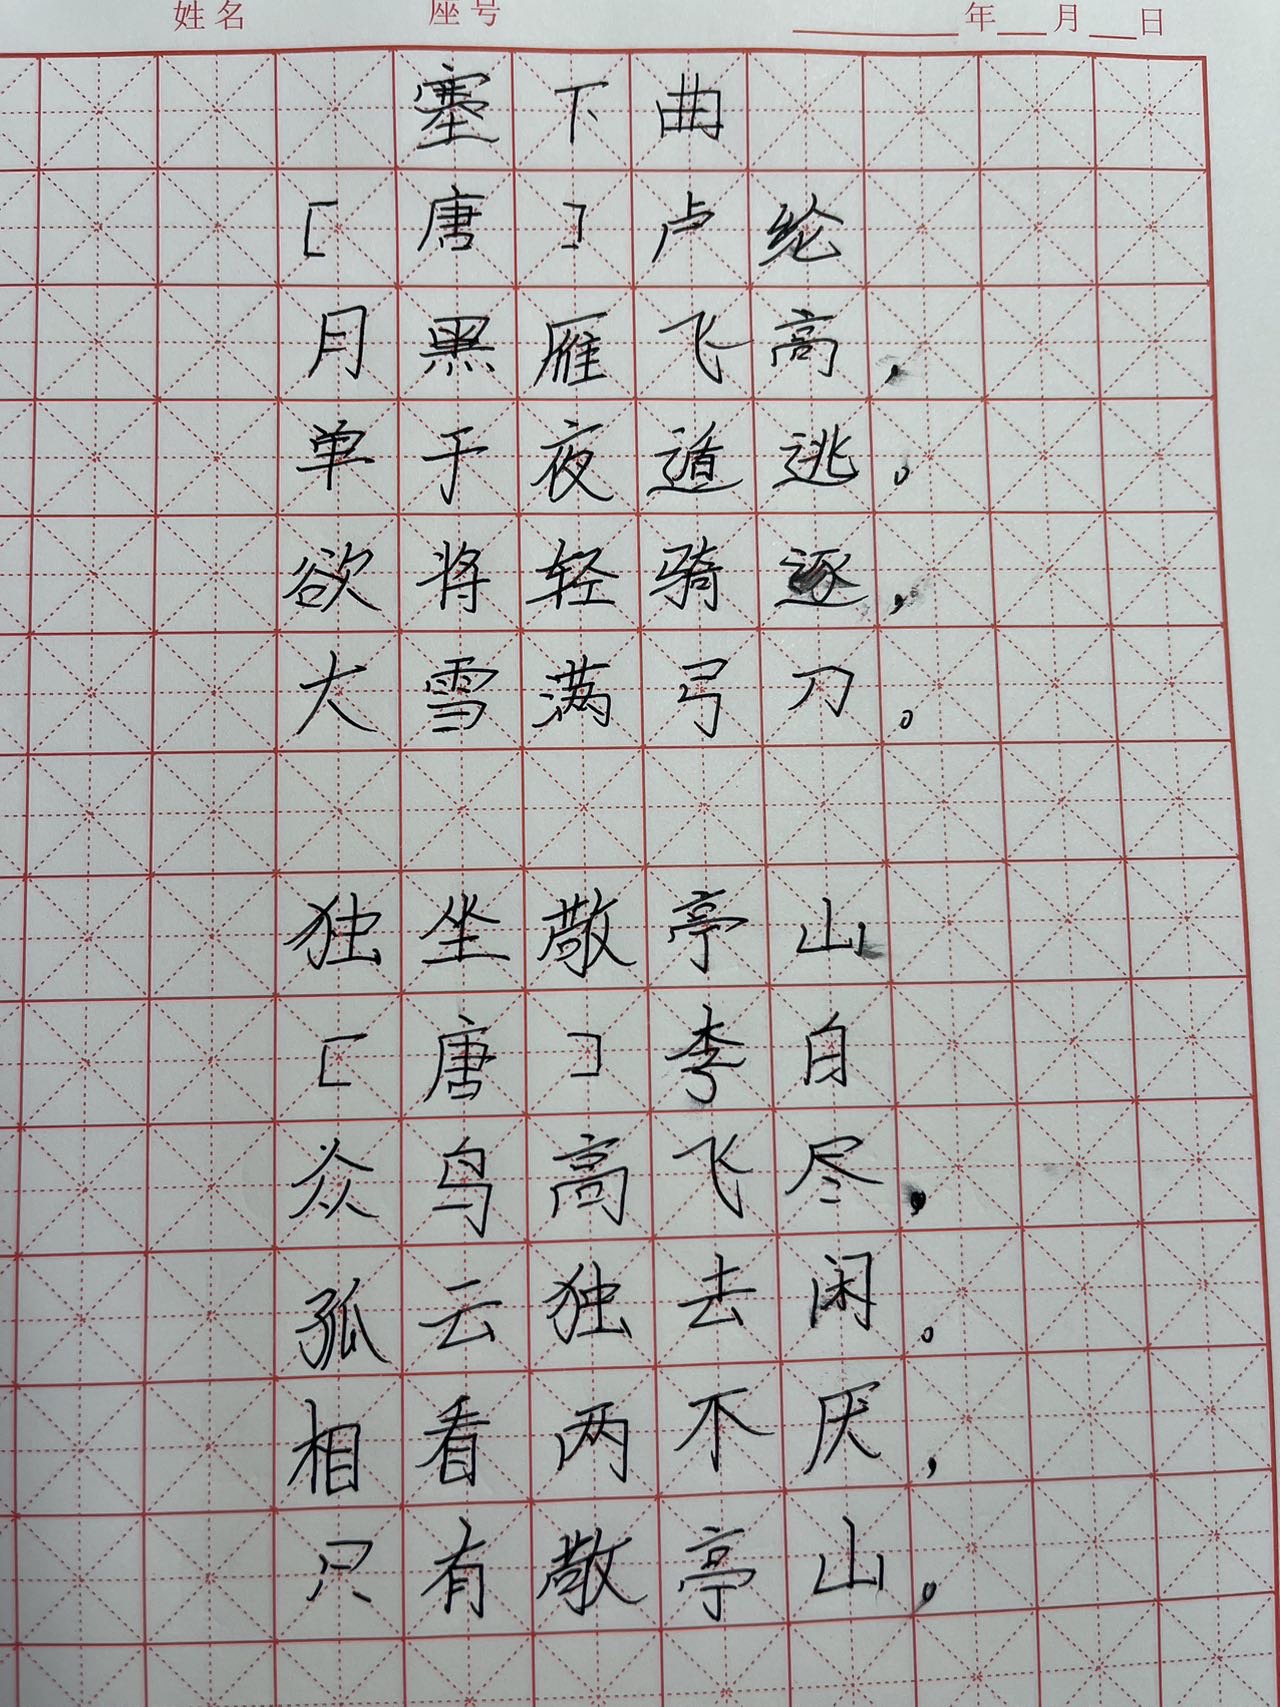 姓名 座号 年 月 日
塞下曲
[唐]卢纶
月黑雁飞高，
单于夜遁逃。
欲将轻骑逐，
大雪满弓刀。
独坐敬亭山
[唐]李白
众鸟高飞尽，
孤云独去闲。
相看两不厌，
只有敬亭山。